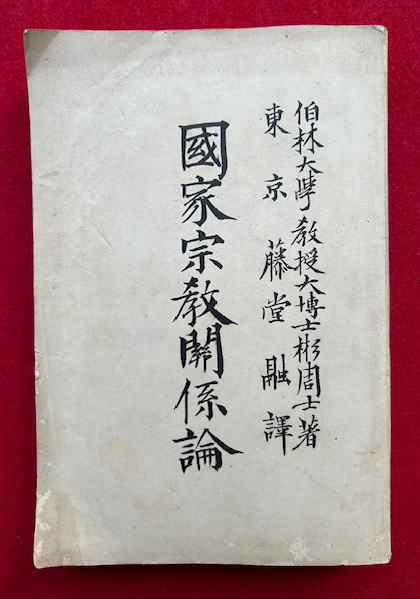 伯林大學教授大博士彬周士著
東京藤堂融譯
國家宗教關係論